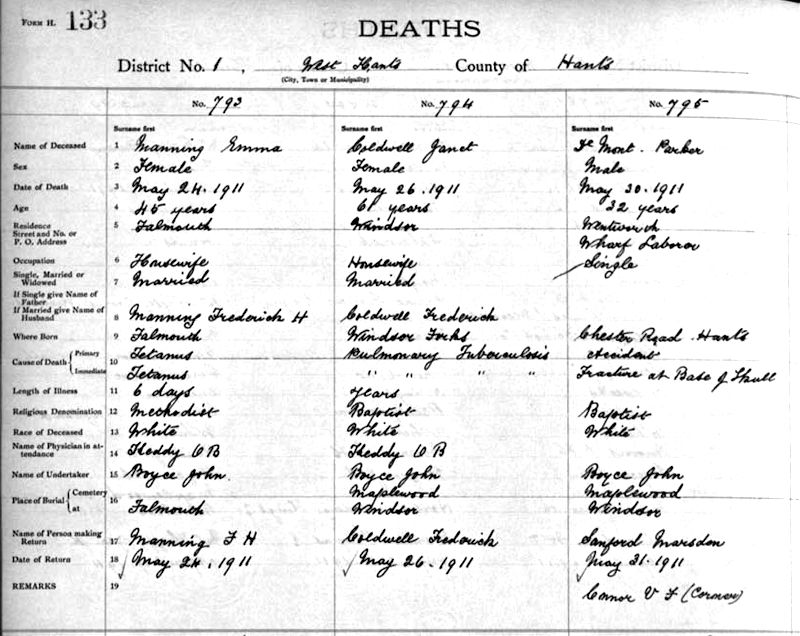 FORM H. 133
DEATHS
District No. 1, West Hants County of Hants
(City, Town or Municipality)
No. 793 No. 794 No. 795
Surname first Surname first Surname first
Name of Deceased 1 Manning Emma Coldwell Janet De Mont. Parker
Sex 2 Female Female Male
Date of Death 3 May 24. 1911 May 26. 1911 May 30. 1911
Age 4 45 years 61 years 32 years
Residence 5 Falmouth Windsor Wentworth
Street and No. or
P. O. Address
Wharf Laborer
Occupation 6 Housewife Housewife Single
Single, Married or
Widowed 7 Married Married
If Single give Name of
Father
If Married give Name of
Husband 8 Manning Frederick H Coldwell Frederick
Where Born 9 Falmouth Windsor Forks Chester Road Hants
Cause of Death { Primary 10 Tetanus Pulmonary Tuberculosis Accident
Immediate Tetanus " " " " Fracture at Base of Skull
Length of Illness 11 6 days years
Religious Denomination 12 Methodist Baptist Baptist
Race of Deceased 13 White White White
Name of Physician in at-
tendance 14 Keddy O B Keddy O B
Name of Undertaker 15 Boyce John. Boyce John Boyce John
Place of Burial { Cemetery 16 Maplewood Maplewood
at Falmouth Windsor Windsor
Name of Person making
Return 17 Manning F H Coldwell Frederick Sanford Marsden
Date of Return 18 May 24. 1911 May 26. 1911 May 31. 1911
REMARKS 19 Connor V F (Coroner)